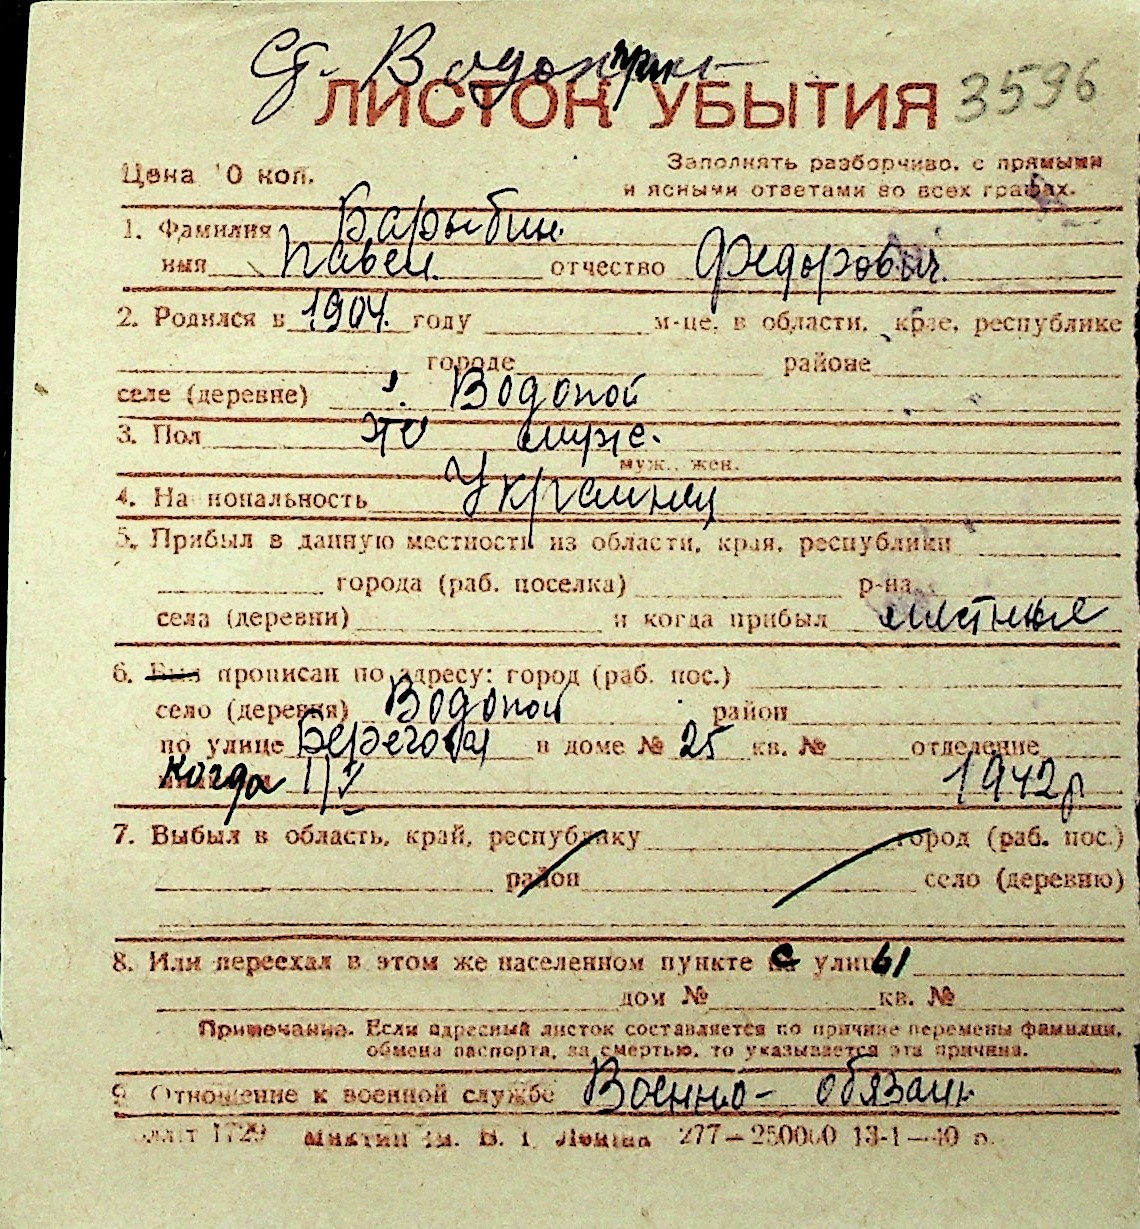 ЛИСТОК УБЫТИЯ 3596
Цена 10 коп.
Заполнять разборчиво, с прямыми
и ясными ответами во всех графах.
1. Фамилия Барыбин
имя Павел отчество Федорович.
2. Родился в 1904. году м-це, в области, крае, республике
городе районе
селе (деревне) с. Водопой
3. Пол муже.
муж., жен.
4. На иональность Украинец
5. Прибыл в данную местность из области, края, республики
города (раб. поселка) р-на
села (деревни) и когда прибыл местный
6. Был прописан по адресу: город (раб. пос.)
село (деревня) Водопой район
по улице Береговая в доме № 25 кв. № отделение
когда 1942р
7. Выбыл в область, край, республику город (раб. пос.)
район село (деревню)
8. Или переехал в этом же населенном пункте с улицы
дом № кв. №
Примечание. Если адресный листок составляется по причине перемены фамилии,
обмена паспорта, за смертью, то указывается эта причина.
9. Отношение к военной службе Военно-обязан
277—250000 13-1—40 г.